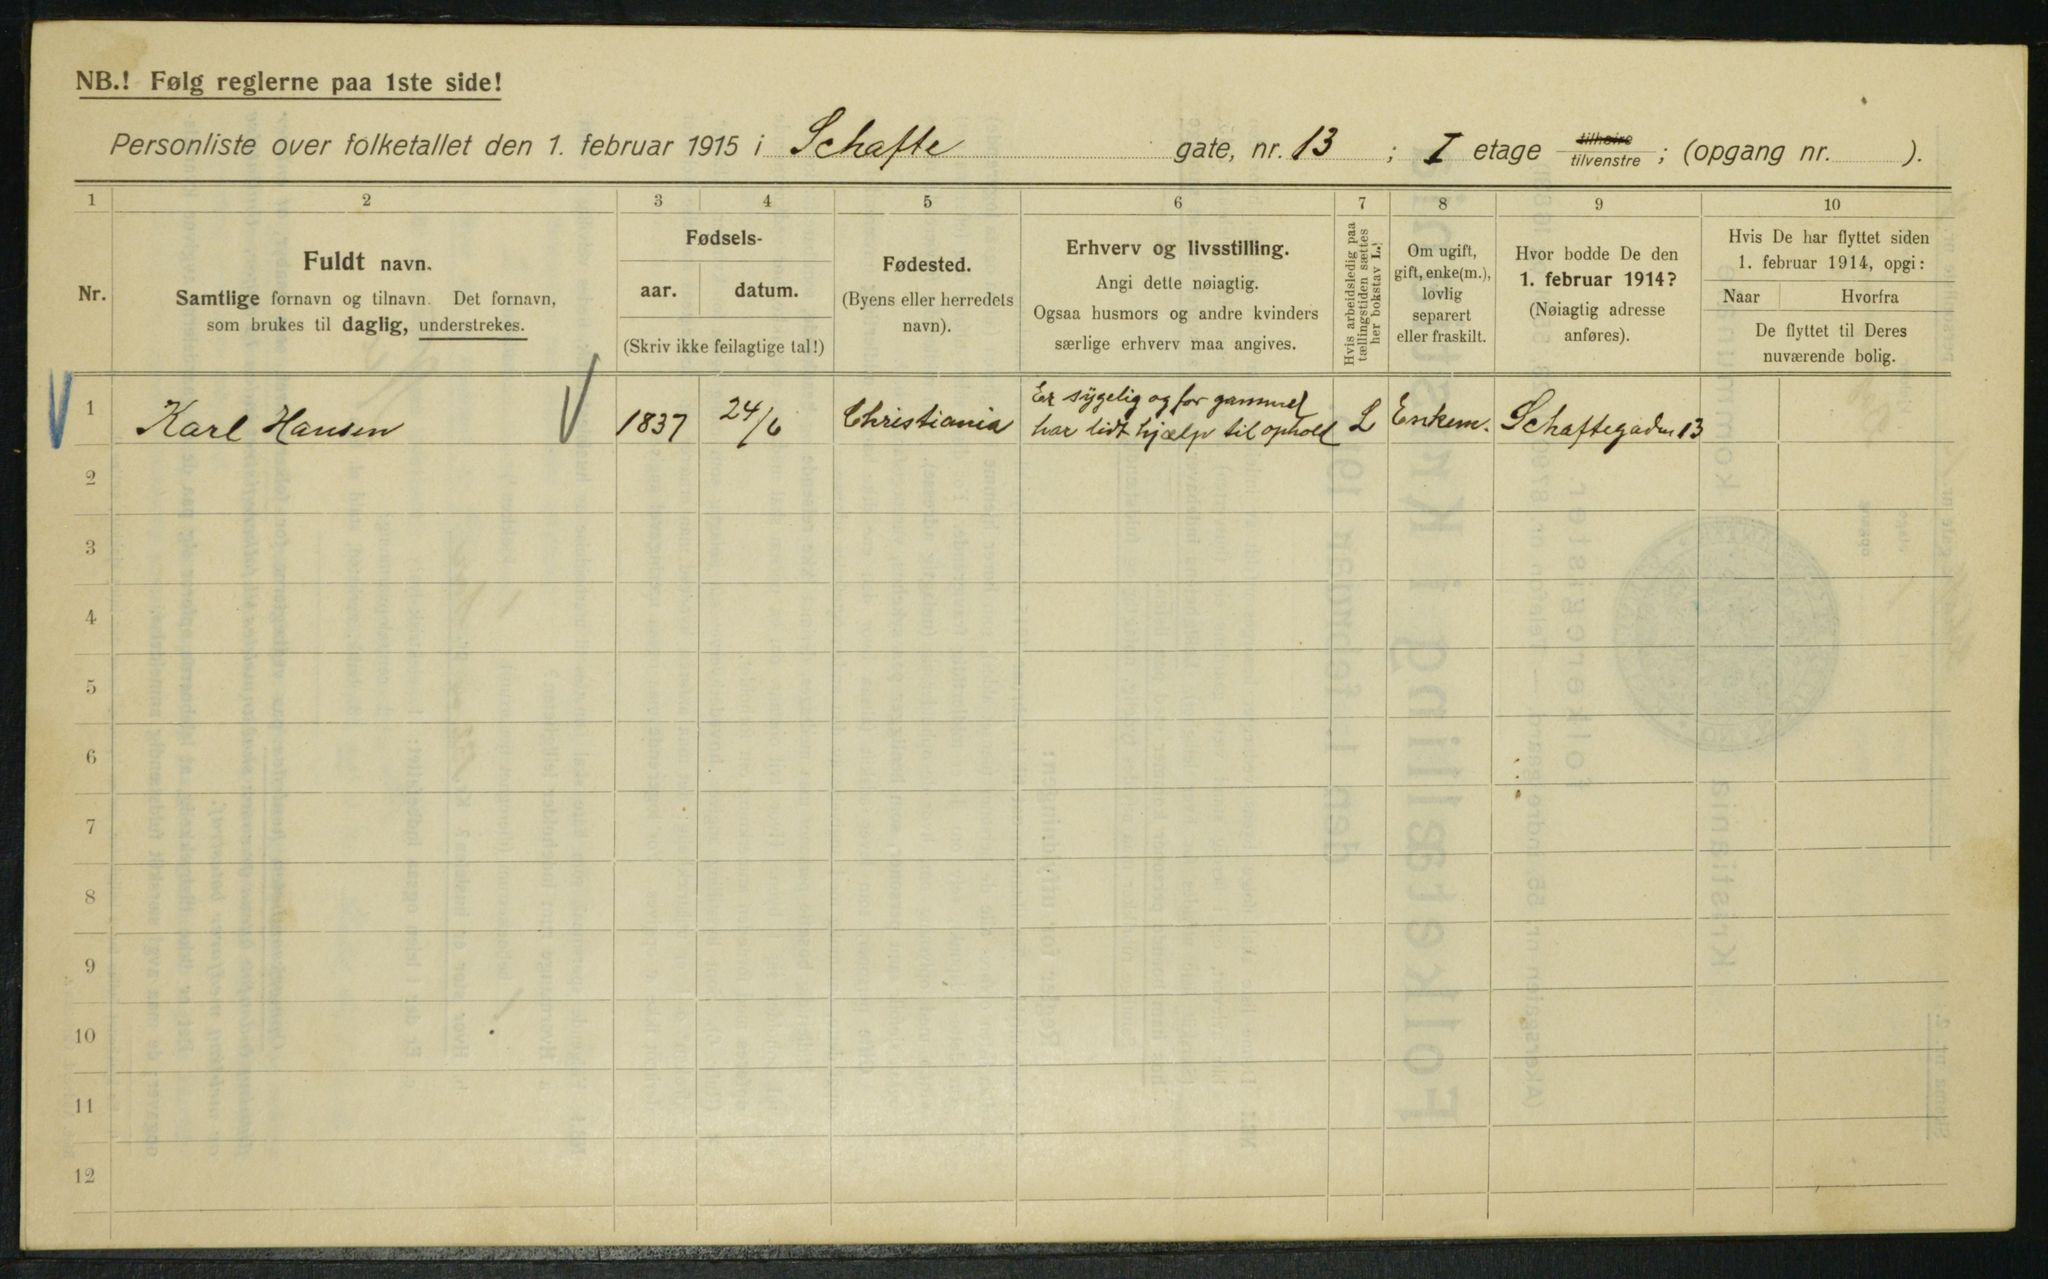 NB.! Følg reglerne paa 1ste side!
Personliste over folketallet den 1. februar 1915 i Schafte gate, nr. 13 ; I etage tilhøire tilvenstre ; (opgang nr. ).
1 2 3 4 5 6 7 8 9 10
Nr.
Fuldt navn.
Samtlige fornavn og tilnavn. Det fornavn,
som brukes til daglig, understrekes.
Fødsels-
aar. datum.
(Skriv ikke feilagtige tal!)
Fødested.
(Byens eller herredets
navn).
Erhverv og livsstilling.
Angi dette nøiagtig.
Ogsaa husmors og andre kvinders
særlige erhverv maa angives.
Hvis arbeidsledig paa
tællingstiden sættes
her bokstav L.!
Om ugift,
gift, enke(m.),
lovlig
separert
eller fraskilt.
Hvor bodde De den
1. februar 1914?
(Nøiagtig adresse
anføres).
Hvis De har flyttet siden
1. februar 1914, opgi:
Naar Hvorfra
De flyttet til Deres
nuværende bolig.
1 Karl Hansen 1837 24/6 Christiania Er sygelig og for gammel
har lidt hjælp til ophold L Enkem. Schaftegaden 13
2
3
4
5
6
7
8
9
10
11
12